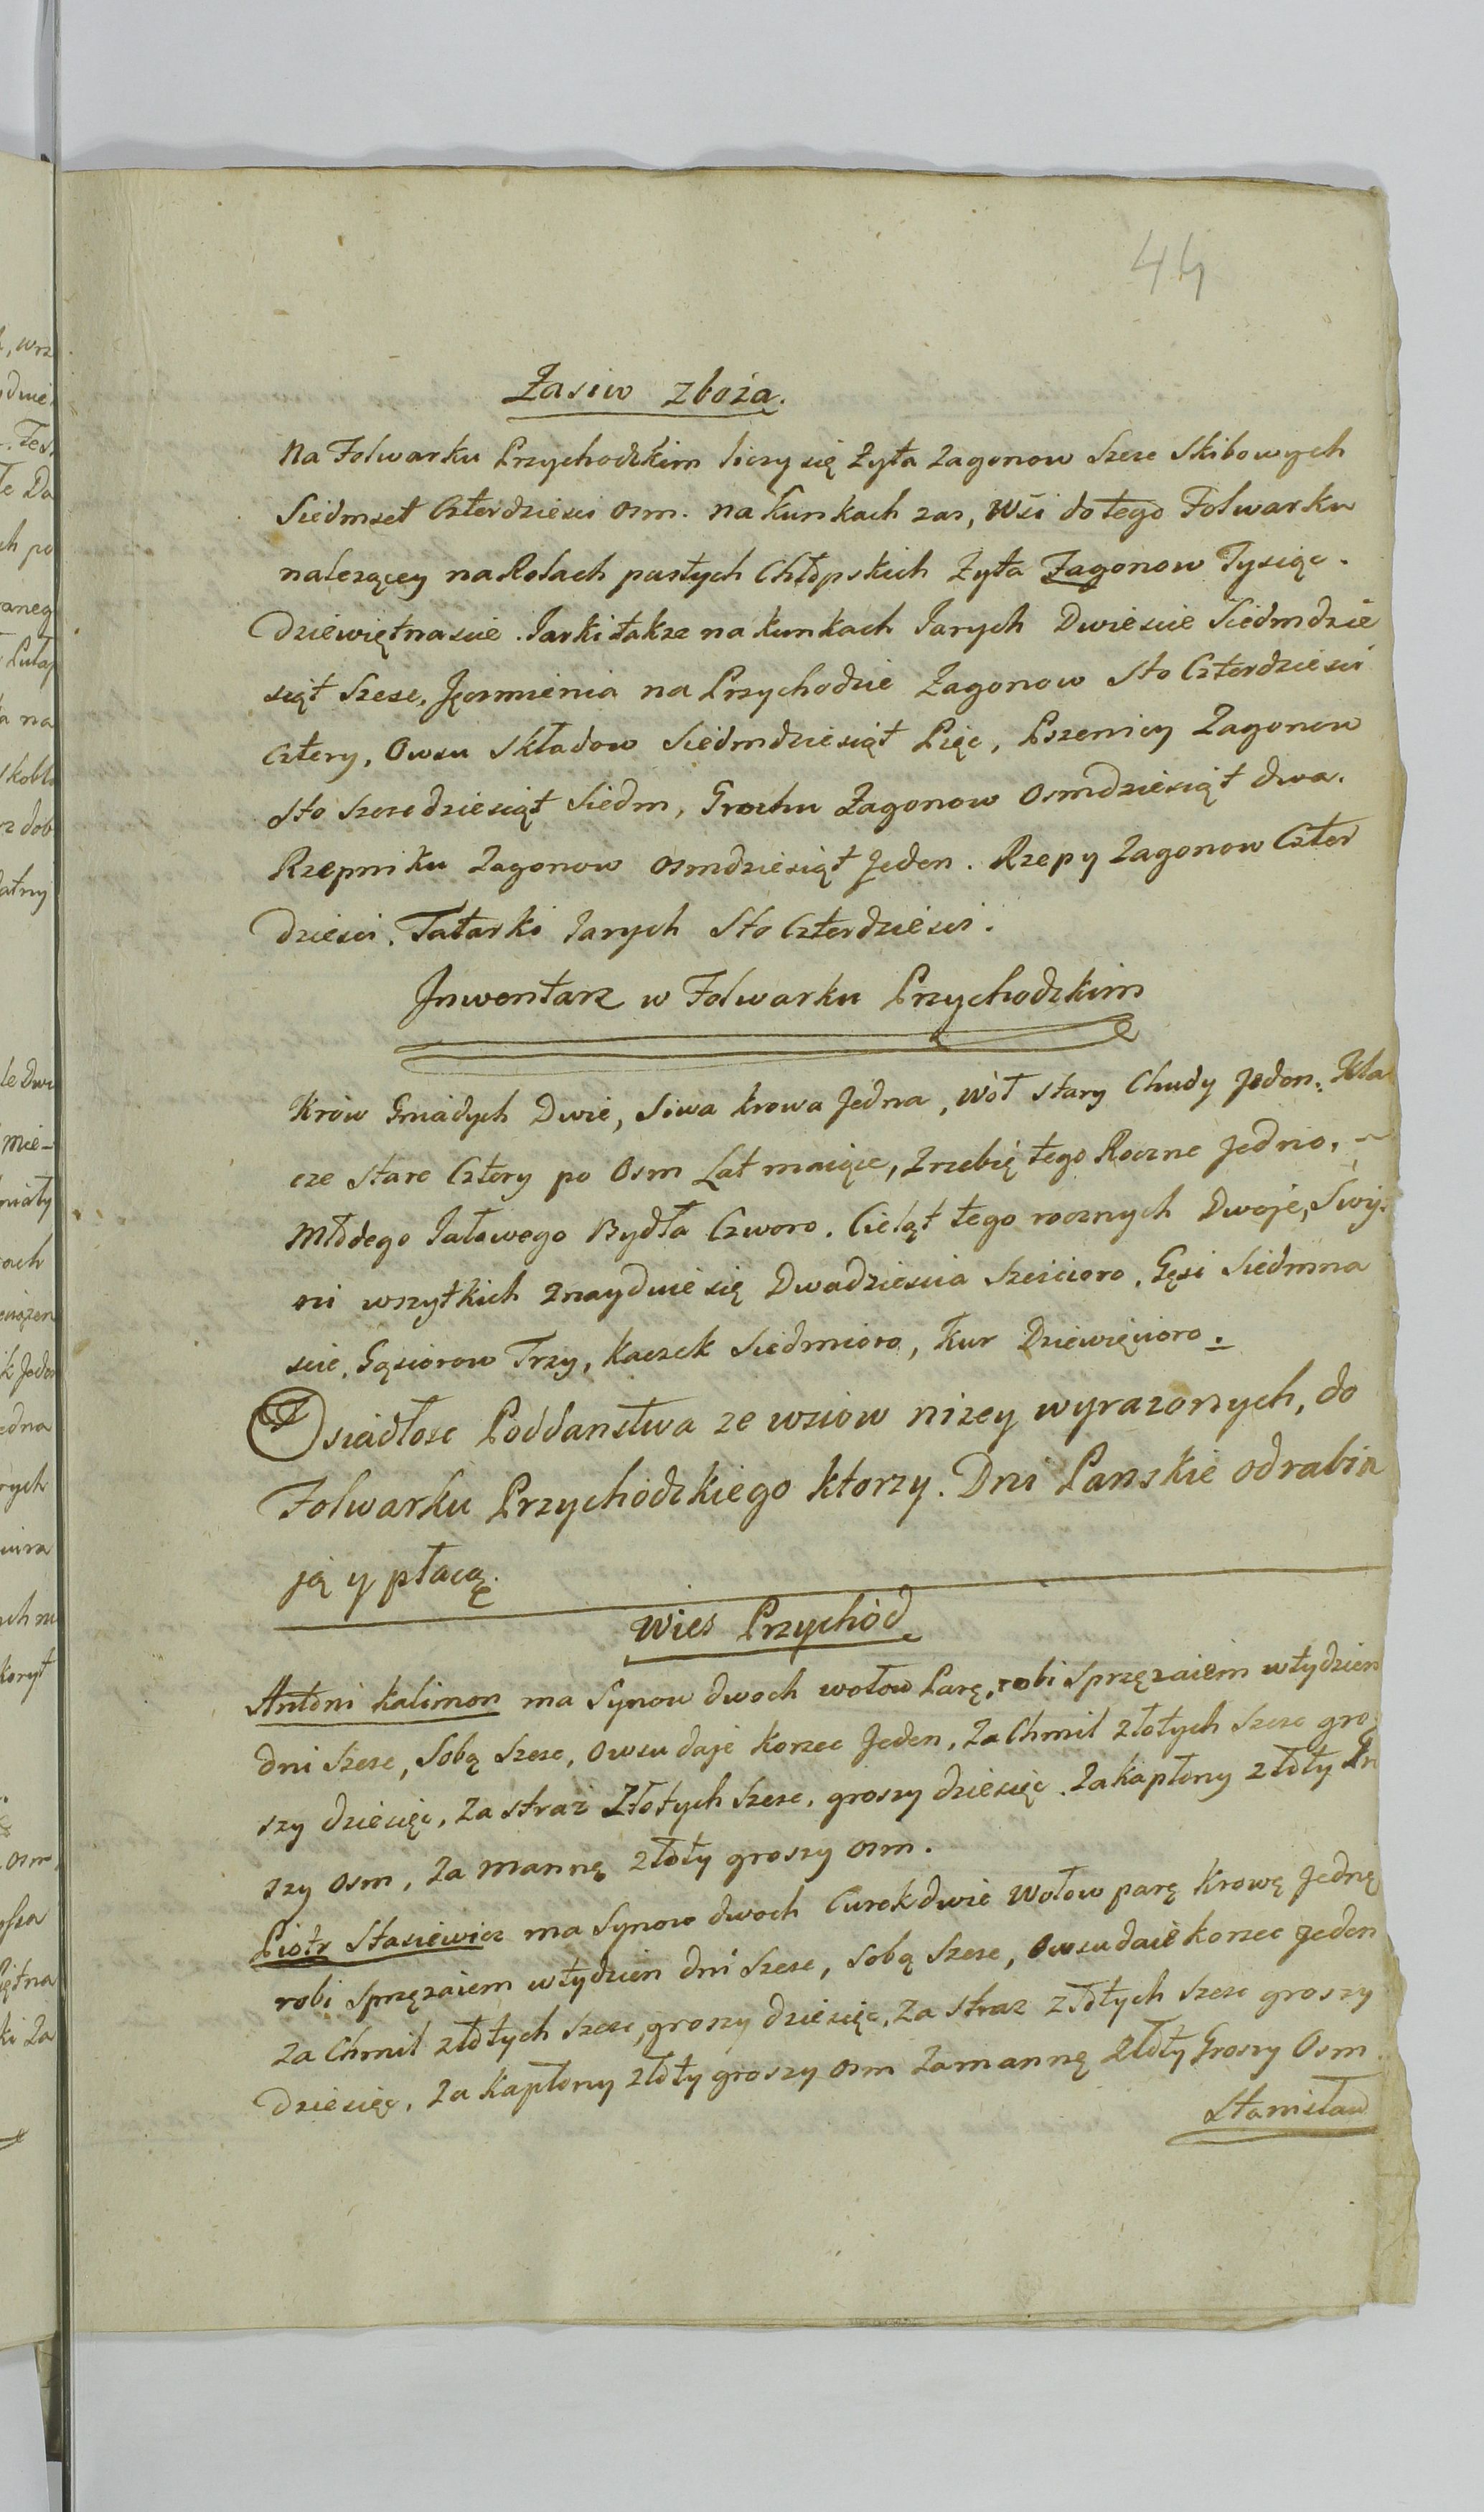 44
Zasiw zboża.
Na Folwarku Przychodzkim liczy się Żyta Zagonow Szesc Skibowych
Siedmset Czterdziesci osm. na Kunkach zas, Wsi do tego Folwarku
nalezącey na Rolach pustych Chłopskich Zyta Zagonow Tysiąc.
Dziewiętnascie. Jarki takze na kunkach Jarych Dwiescie Siedmdzie
siąt Szesc, Jęczmienia na Przychodzie Zagonow Sto Czterdziesci
cztery, Owsu Składow Siedmdziesiąt Pięc, Pszenicy Zagonow
Sto Szescdziesiąt Siedm, Grochu Zagonow Osmdziesiąt dwa.
Rzepniku Zagonow osmdziesiąt Jeden. Rzepy Zagonow Czter
dziesci. Tatarki Jarych Sto Czterdziesci.
Jnwentarz w Folwarku Przychodzkim
Krów Gniadych Dwie, Siwa krowa Jedna, Wół stary Chudy Jeden. Kla
cze stare Cztery po Osm Lat maiące, Zrzebię tego Roczne Jedno,
Młodego Jałowego Bydła Czworo. Cieląt tego rocznych Dwoje, Swij
ni wszytkich znayduie się Dwadziescia Sześcioro, Gęsi Siedmna
scie, Gąsiorow Trzy, Kaczek Siedmioro, Kur Dziewięcioro.
Osiadłosc Poddanstwa ze wsiow nizey wyrazonych, do
Folwarku Przychodzkiego ktorzy. Dni Panskie odrabia
ją y płacą.
Wies Przychód
Antoni Kalimon ma Synow dwoch wołow Parę, robi Sprzęzaiem w tydzien
dni Szesc, Sobą Szesc, Owsu daje korzec Jeden, Za Chmil złotych Szesc gro
szy dziesięc, Za straż Złotych Szesc, groszy dziesięc. Za kapłony złoty Gro
szy Osm, Za Mannę złoty groszy osm.
Piotr Stasiewicz ma Synow dwoch Curek dwie Wołow parę Krowę Jednę
robi Sprzęzaiem w tydzien dni Szesc, Sobą Szesc, Owsu daie korzec Jeden
Za Chmil złotych Szesc, groszy dziesięc, Za straz złotych Szesc groszy
Dziesięc, Za Kapłony złoty groszy osm Za mannę złoty Groszy Osm.
Stanisław